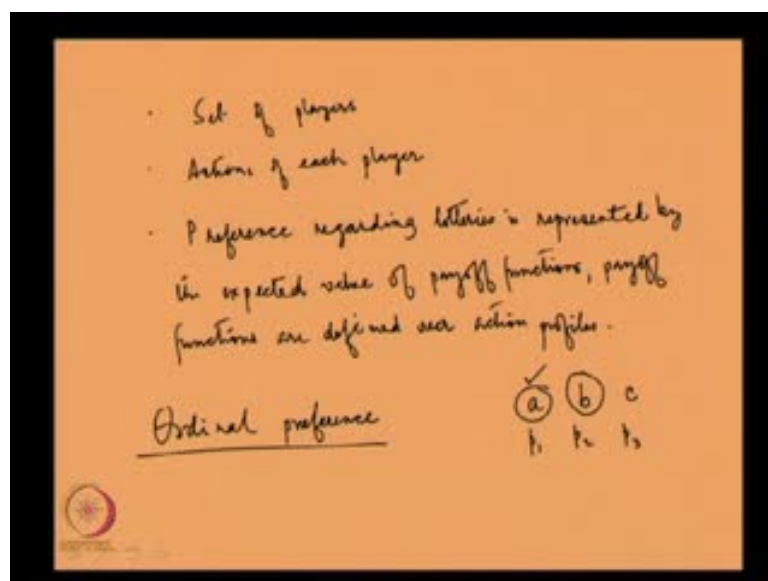 · Set of players
· Actions of each player
· Preference regarding lotteries is represented by
the expected value of payoff functions, payoff
functions are defined over action profiles.
Ordinal preference
✓
a b c
p₁ p₂ p₃